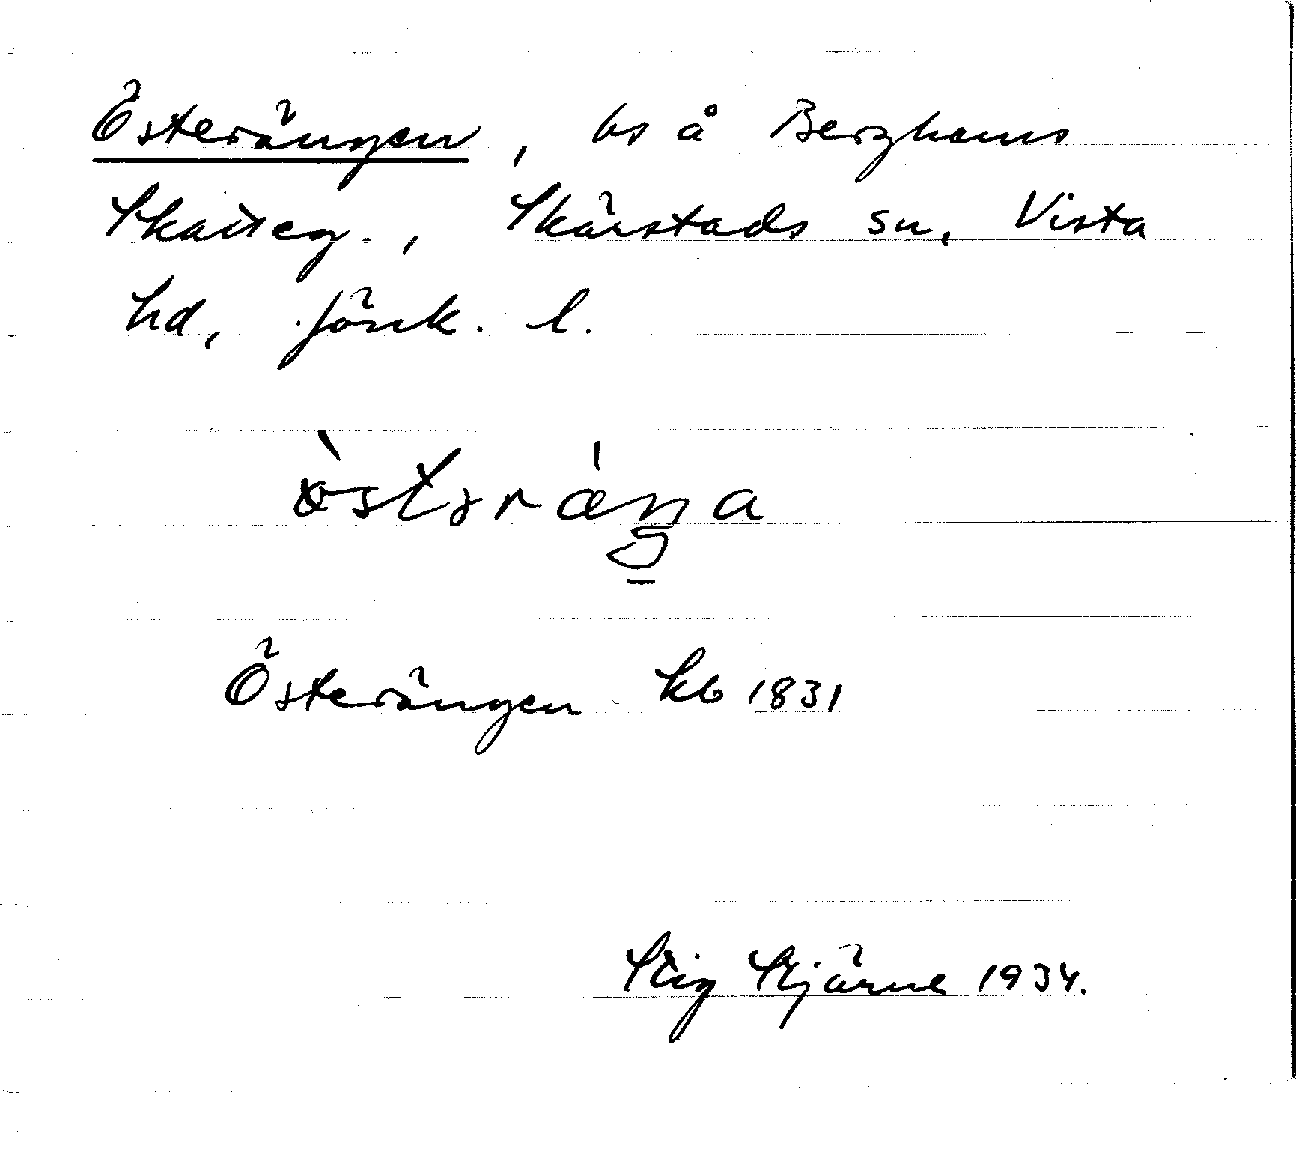 Österängen, bs å Berghems
Skatteg., Skärstads sn, Vista
hd, Jönk. l.
östəräŋa
Österängen hb 1831
Stig Stjärne 1934.